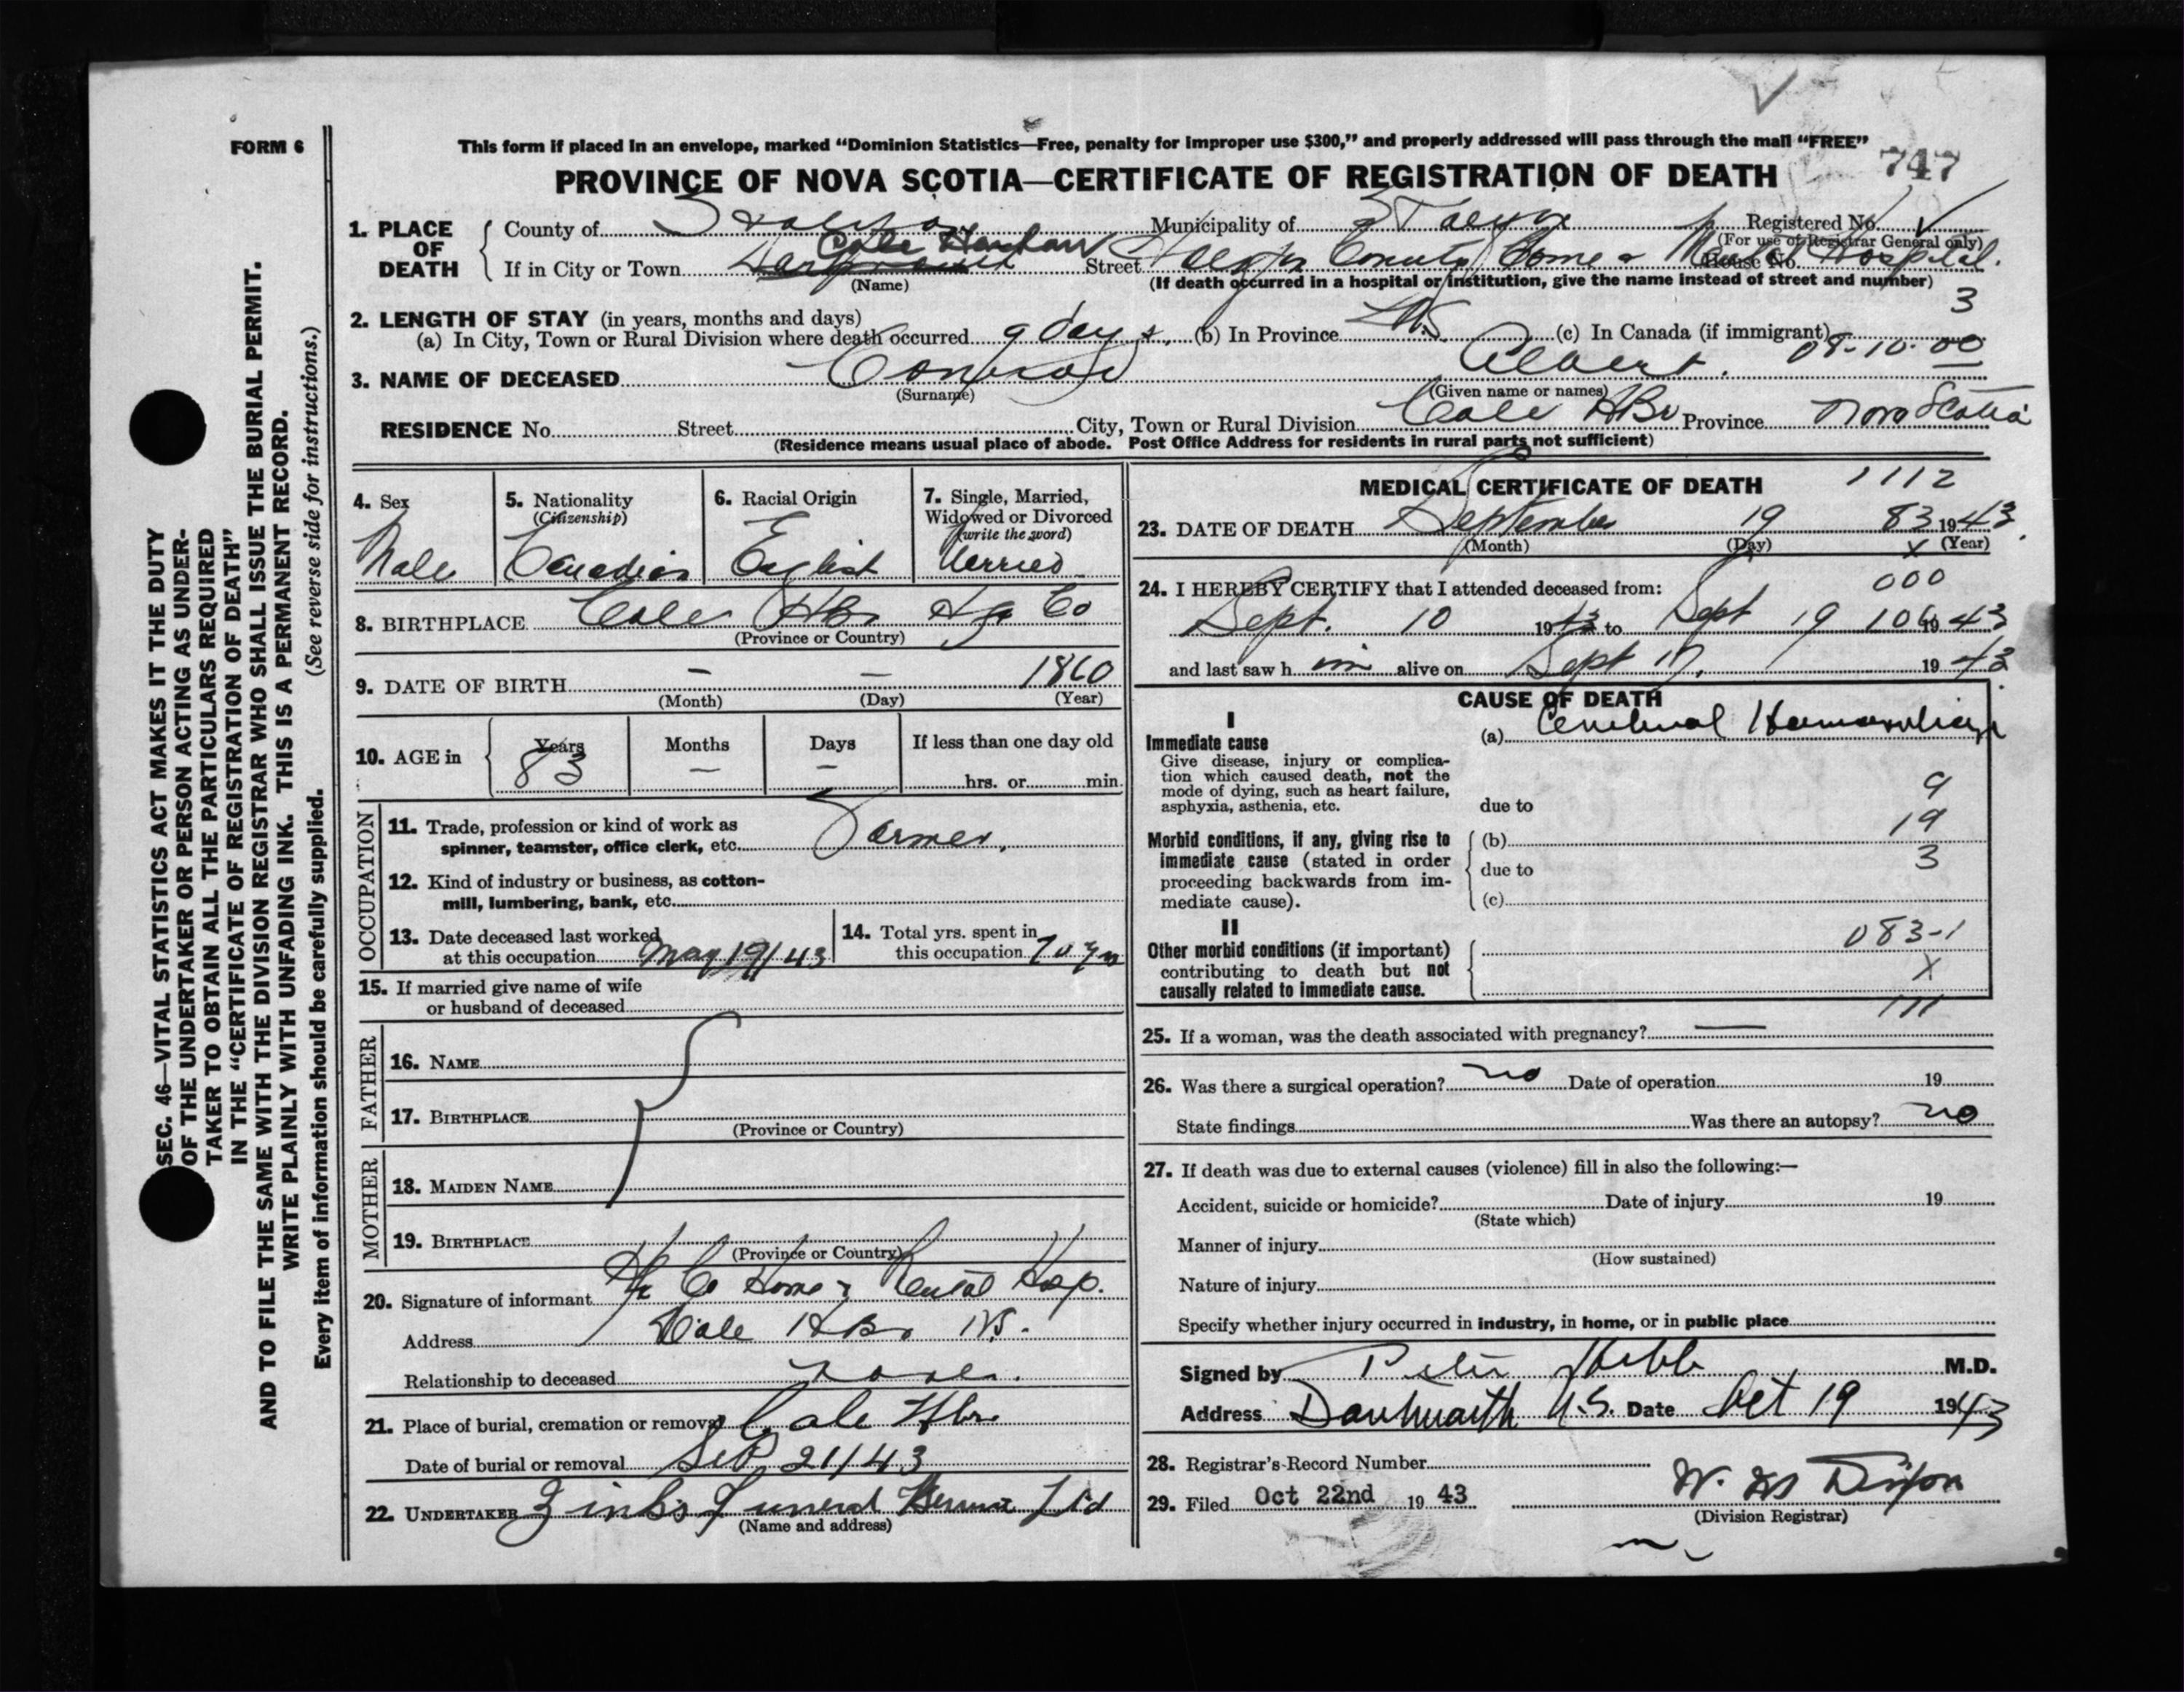 FORM 6
This form if placed in an envelope, marked “Dominion Statistics—Free, penalty for improper use $300,” and properly addressed will pass through the mail “FREE”
747
PROVINCE OF NOVA SCOTIA—CERTIFICATE OF REGISTRATION OF DEATH
1. PLACE OF DEATH
County of Halifax Municipality of Halifax Registered No.
(For use of Registrar General only)
If in City or Town Dartmouth Cole Harbour Street Halifax County Home & Mental Hospital. House No.
(Name)
(If death occurred in a hospital or institution, give the name instead of street and number)
3
2. LENGTH OF STAY (in years, months and days)
(a) In City, Town or Rural Division where death occurred 9 days. (b) In Province (c) In Canada (if immigrant)
08-10-00
3. NAME OF DECEASED Conrod Albert.
(Surname) (Given name or names)
RESIDENCE No. Street City, Town or Rural Division Cole HBr Province Nova Scotia
(Residence means usual place of abode. Post Office Address for residents in rural parts not sufficient)
4. Sex
Male
5. Nationality
(Citizenship)
Canadian
6. Racial Origin
English
7. Single, Married,
Widowed or Divorced
(write the word)
Married
8. BIRTHPLACE Cole HBr Hfx Co
(Province or Country)
9. DATE OF BIRTH — — 1860
(Month) (Day) (Year)
10. AGE in
Years Months Days If less than one day old
83 — — hrs. or min.
OCCUPATION
11. Trade, profession or kind of work as
spinner, teamster, office clerk, etc. Farmer.
12. Kind of industry or business, as cotton-
mill, lumbering, bank, etc.
13. Date deceased last worked
at this occupation May 19/43
14. Total yrs. spent in
this occupation 70 yrs
15. If married give name of wife
or husband of deceased
FATHER
16. NAME
17. BIRTHPLACE
(Province or Country)
MOTHER
18. MAIDEN NAME
19. BIRTHPLACE
(Province or Country)
20. Signature of informant Hx Co Home & Mental Hosp.
Address Cole HBr NS.
Relationship to deceased None.
21. Place of burial, cremation or removal Cole Hbr
Date of burial or removal Sep 21/43
22. UNDERTAKER Zinks Funeral Service Ltd
(Name and address)
MEDICAL CERTIFICATE OF DEATH
1112
23. DATE OF DEATH September 19 83 1943
(Month) (Day) X (Year)
24. I HEREBY CERTIFY that I attended deceased from:
000
Sept. 10 1943 to Sept 19 1943
and last saw him alive on Sept 17, 1943
CAUSE OF DEATH
I
Immediate cause
Give disease, injury or complica-
tion which caused death, not the
mode of dying, such as heart failure,
asphyxia, asthenia, etc.
(a) Cerebral Hemorrhage
9
due to
19
Morbid conditions, if any, giving rise to
immediate cause (stated in order
proceeding backwards from im-
mediate cause).
(b)
3
due to
(c)
II
083-1
Other morbid conditions (if important)
contributing to death but not
causally related to immediate cause.
X
111
25. If a woman, was the death associated with pregnancy? —
26. Was there a surgical operation? no Date of operation 19
State findings Was there an autopsy? no
27. If death was due to external causes (violence) fill in also the following:—
Accident, suicide or homicide? Date of injury 19
(State which)
Manner of injury
(How sustained)
Nature of injury
Specify whether injury occurred in industry, in home, or in public place
Signed by Peter Hebb M.D.
Address Dartmouth N.S. Date Oct 19 1943
28. Registrar's Record Number
29. Filed Oct 22nd 19 43 Dixon
(Division Registrar)
SEC. 46—VITAL STATISTICS ACT MAKES IT THE DUTY
OF THE UNDERTAKER OR PERSON ACTING AS UNDER-
TAKER TO OBTAIN ALL THE PARTICULARS REQUIRED
IN THE “CERTIFICATE OF REGISTRATION OF DEATH”
AND TO FILE THE SAME WITH THE DIVISION REGISTRAR WHO SHALL ISSUE THE BURIAL PERMIT.
WRITE PLAINLY WITH UNFADING INK. THIS IS A PERMANENT RECORD.
Every item of information should be carefully supplied. (See reverse side for instructions.)